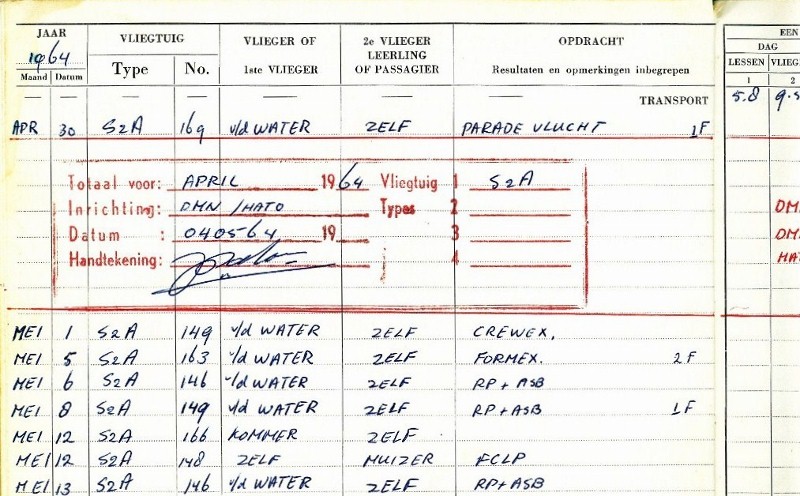 JAAR VLIEGTUIG VLIEGER OF 2e VLIEGER OPDRACHT EEN
1964 LEERLING DAG
Maand Datum Type No. 1ste VLIEGER OF PASSAGIER Resultaten en opmerkingen inbegrepen LESSEN VLIEG
1 2
— — — — — — TRANSPORT 5.8 9.5
APR 30 S2A 169 v/d WATER ZELF PARADE VLUCHT 1F
Totaal voor: APRIL 1964 Vliegtuig 1 S2A
Inrichting: DMN / HATO Types 2
Datum : 040564 19 3
Handtekening: 4
MEI 1 S2A 149 v/d WATER ZELF CREWEX.
MEI 5 S2A 163 v/d WATER ZELF FORMEX. 2F
MEI 6 S2A 146 v/d WATER ZELF RP + ASB
MEI 8 S2A 149 v/d WATER ZELF RP + ASB 1F
MEI 12 S2A 166 KOMMER ZELF
MEI 12 S2A 148 ZELF MUIZER FCLP
MEI 13 S2A 146 v/d WATER ZELF RP + ASB